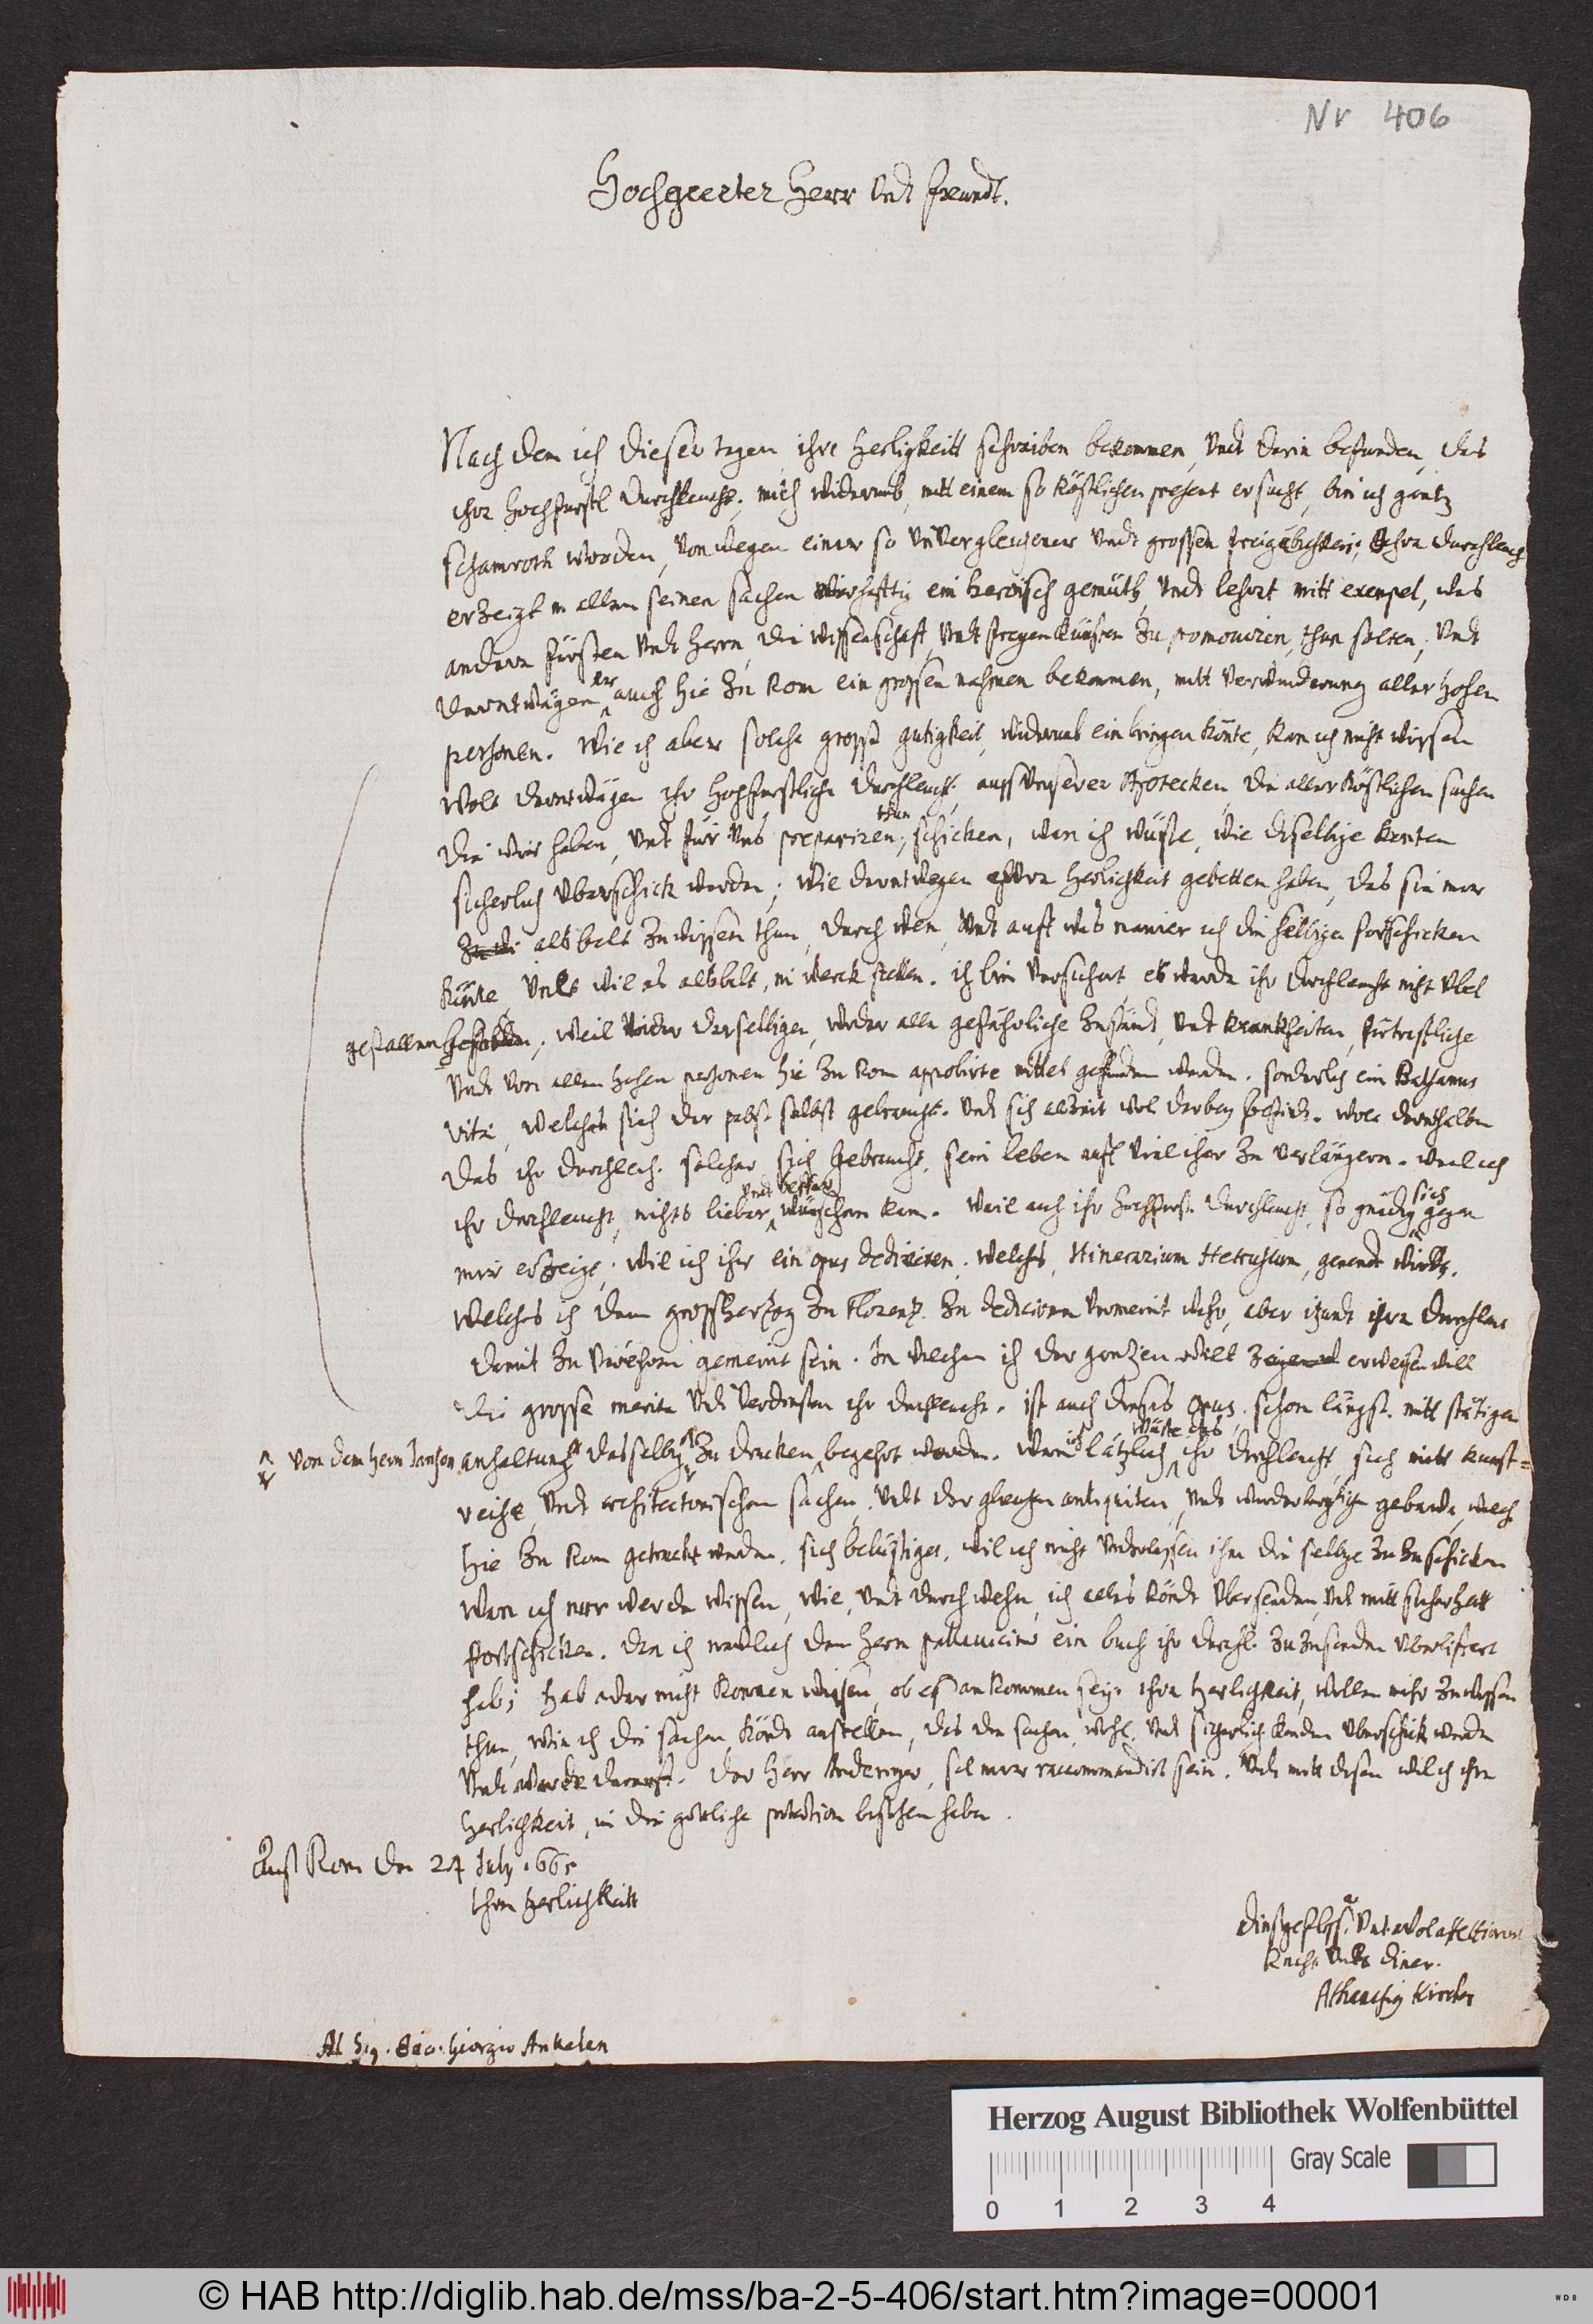 Nr 406
Hochgeerter Herr Undt freundt.
Nach dem ich dieser tagen ihre Herligkeitt schreiben bekommen, Undt darin befunden, das
ihr Hochfurstl Durchleucht, mich widerumb, mitt einem so köstlichen present ersucht, bin ich gantz
schamroth worden, von wegen einer so unvergleichener Undt grossen freigäbichkeit; ihre durchleucht
erzeigt in allen seinen sachen warhafftig ein heroisch gemüth, Undt lehrt mitt exempel, was
andere fürsten Undt Herrn, die wissenschaft, Undt freyen künsten zu promouiren, thun solten, Undt
derentwägen er auch hie zu Rom ein grossen nahmen bekommen, mitt verwunderung aller hohen
personen. Wie ich aber solche grosse gutigkeit, widerumb einbringen könte, kan ich nicht wissen
Wolt derentwägen ihr Hochfurstliche durchleucht, auss Unserer Apotecken die aller köstlichen sachen
die wir haben, Undt für Uns prepariren thun, schicken, wan ich wüste, wie diselbige konten
sicherlich uberschick werden; Wie derentwegen Ihre Herlichkeit gebetten haben, das sie mir
alsbalt zu wissen thun, durch wen, Undt auff was manier ich die selbigen fortschicken
könte, Undt wil es alsbalt, in werck stellen. ich bin versichert es werde ihr durchleucht nicht Ubel
gefallen, weil wider derselbigen, wider alle gefährliche zuständ, Undt kranckheiten, fürtrefliche
Undt von allen hohen personen hie zu Rom approbirte mittel gefunden werden. sonderlich ein Balsamus
vitae, welches sich der pabst selbst gebraucht. Undt sich alzeit wol darbey befindt. wolt derenthalben
das ihr durchleuch. solcher sich gebraucht, sein leben auff viel ihar zu verlängern. weil ich
ihr durchleucht, nichts lieber Undt besser wünschen kan. Weil auch ihr Hochfurst. Durchleucht, so gnädig sich gegen
mir erzeigt, wil ich ihr ein opus dediciren, welches, Itinerarium Hetruscum, genendt wirdt.
Welches ich dem grossherzog zu Florenz zu dediciren vermeint wahr, aber itzundt ihre durchleuc
damit zu verehren gemeint sein. In welchem ich der gantzen welt erweisen will
die grosse merita Undt verdinsten ihr durchleucht. ist auch dieses opus schon längst mitt stätigen
von dem Herrn Janson anhaltung dasselbig zu drucken, begehrt worden. Wan ich lätzlich wüste das ihr durchleucht, sich mitt kunst=
reiche, Undt architectonischen sachen, Undt der gleichen antiquiteten, Undt wunderbarlichen gebewde, welch
hie zu Rom getruckt werden, sich belustiget, wil ich nicht underlassen ihm die selbige zu zuschicken
Wan ich nur werde wissen, wie, Undt durch wehn, ich alles köndt Ubersenden, Undt mitt sicherheit
fortschicken. Den ich neulich dem Herrn pallauicino ein buch ihr durchl. zu zusenden Uberlifert
hab; hab aber nicht können wissen, ob es ankommen sey. Ihre Herlichkeit, wollen mihr zu wissen
thun, wie ich die sachen köndt anstellen, das die sachen, wohl Undt sicherlich konden Uberschickt werden
Undt Der Herr Anderinger, sol mir reccommandirt sein. Undt mitt disem wil ich ihre
Herlichkeit, in die götliche protection befohlen haben.
Auss Rom den 24 July 1665
Ihrer Herlichkeitt
Dinstgeflissner Undt wol affectionir
Knecht Undt diner.
Athanasius Kircher
Al Sig. Gio: Giorgio Ankelen
Herzog August Bibliothek Wolfenbüttel
Gray Scale
0 1 2 3 4
© HAB http://diglib.hab.de/mss/ba-2-5-406/start.htm?image=00001
WDB